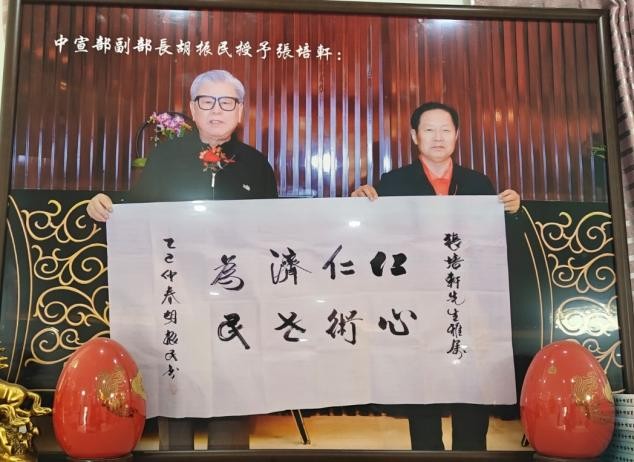 中宣部副部長胡振民授予張培軒：
張培軒先生雅属
仁心
仁術
濟世
為民
乙巳仲春胡振民书